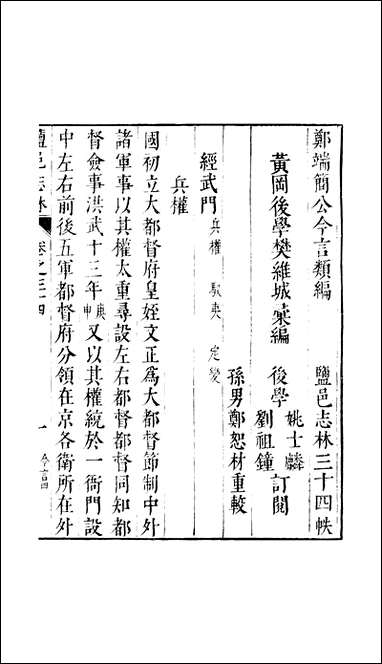 鄭端簡公今言類編　鹽邑志林三十四帙
黃岡後學樊維城彙編　後學
姚士麟
劉祖鐘
訂閱
孫男鄭恕材重較
經武門　兵權　馭夷　定變
兵權
國初立大都督府皇姪文正爲大都督節制中外
諸軍事以其權太重尋設左右都督都督同知都
督僉事洪武十三年庚申又以其權統於一衙門設
中左右前後五軍都督府分領在京各衛所在外
鹽邑志林　卷之三四　一　今言四